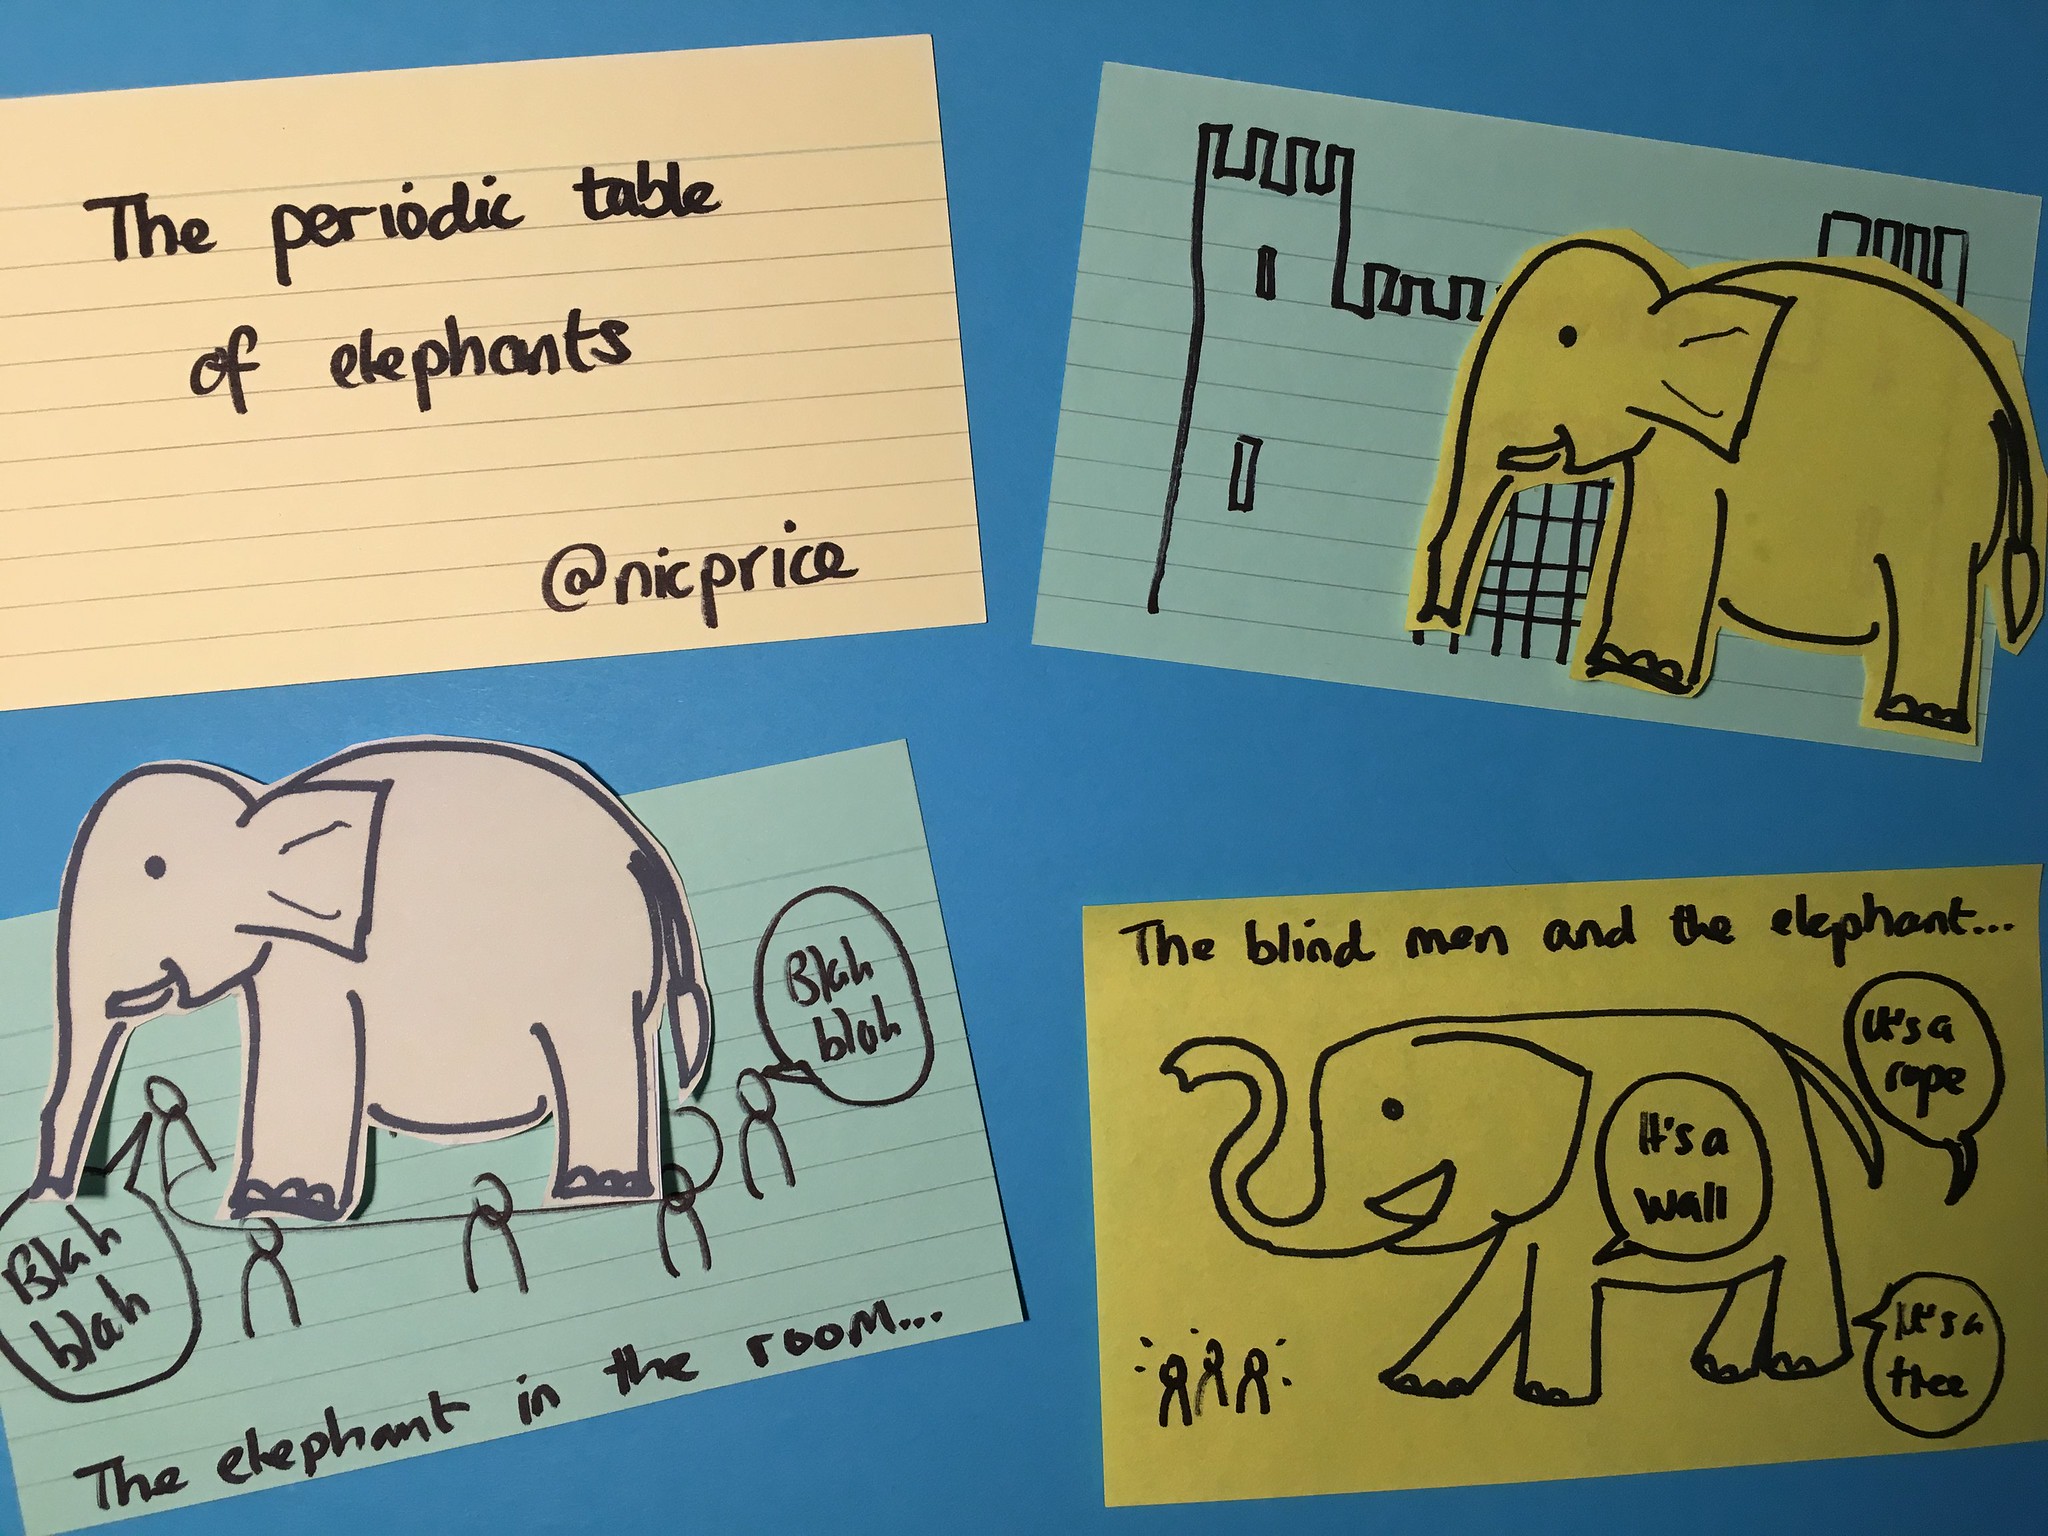 The periodic table
of elephants
@nicprice
Blah
blah
Blah
blah
The elephant in the room...
The blind men and the elephant...
It's a
rope
It's a
wall
It's a
tree